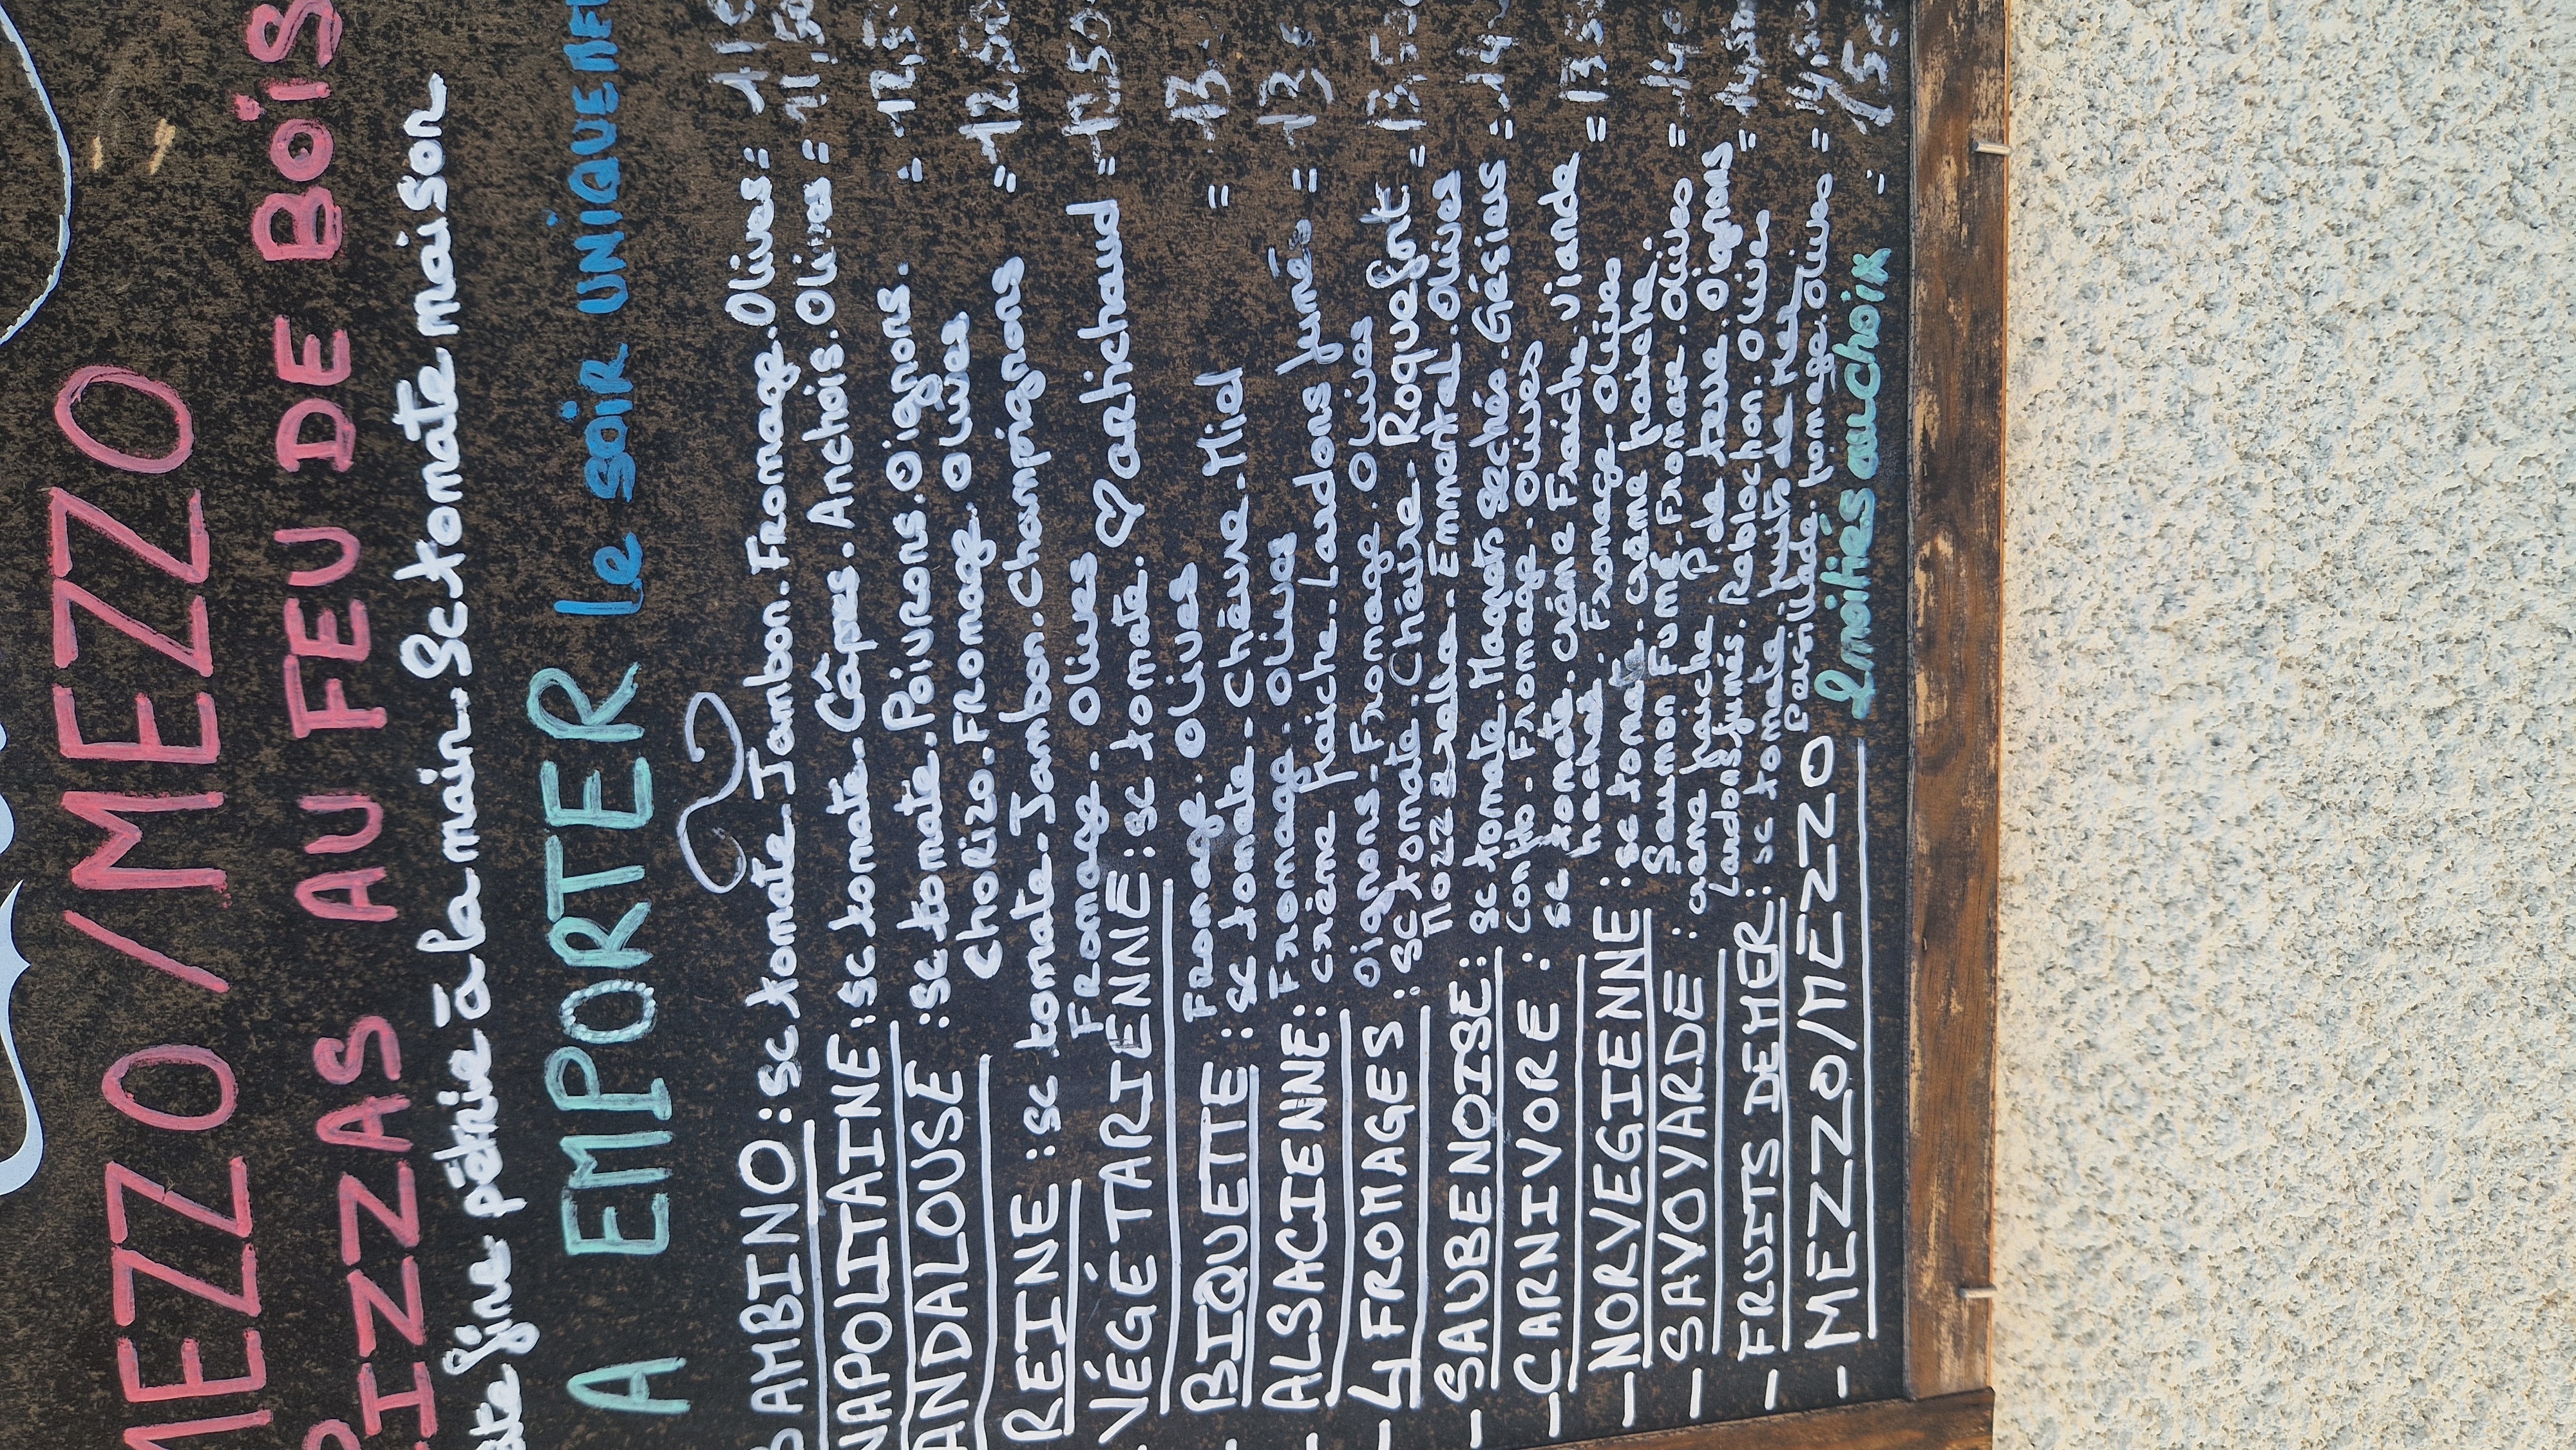 MEZZO/MEZZO
PIZZAS AU FEU DE BOIS
Pate fine pétrie à la main. Sc tomate maison
A EMPORTER Le soir UNIQUEME
BAMBINO : sc tomate Jambon. Fromage. Olives : 11€
NAPOLITAINE : sc tomate. Câpres. Anchois. Olives = 11,50
ANDALOUSE : sc tomate. Poivrons. Oignons. = 12,5
Chorizo. Fromage. Olives
REINE : sc tomate. Jambon. Champignons = 12.50
Fromage. Olives
VÉGÉTARIENNE : sc tomate. ♡ artichaud = 12.50
Fromage. Olives
BIQUETTE : sc tomate. Chèvre. Miel = 13.
Fromage. Olives
ALSACIENNE : crème fraiche. Lardons fumés = 13 €
Oignons. Fromage. Olives
- 4 FROMAGES : sc tomate. Chèvre. Roquefort = 13.5
Mozzarella. Emmental. Olives
- SAUBENOISE : sc tomate. Magret séché. Gésiers = 14
Confit. Fromage. Olives
- CARNIVORE : sc tomate. crème Fraiche. viande = 13.5
hachée. Fromage. Olives
- NORVEGIENNE : sc tomate. crème fraiche.
Saumon Fumé. Fromage. Olives = 14€
- SAVOYARDE : creme fraiche P de terre. Oignons = 14.50
Lardons fumés. Reblochon. Olive
- FRUITS DE MER : sc tomate fruits de Mer
Persillade. fromage. Olives = 14,50
- MEZZO/MEZZO 2 moitiés au choix : 15